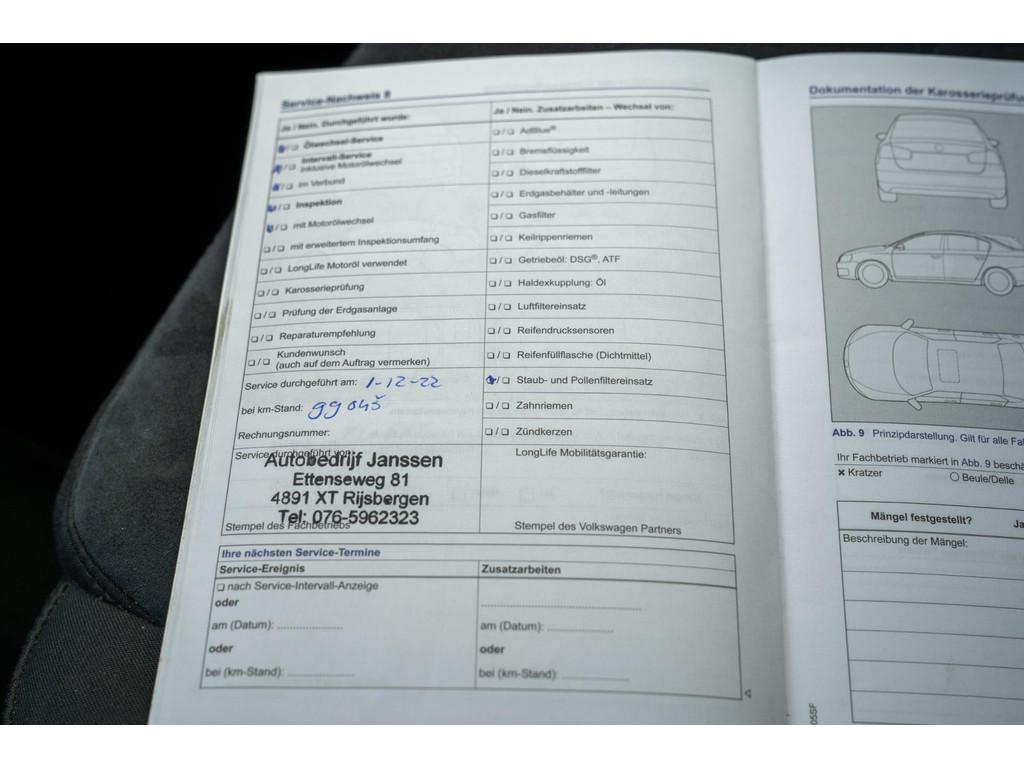 Service-Nachweis 8
Ja / Nein. Durchgeführt wurde:
❏/❏ Ölwechsel-Service
❏/❏ Intervall-Service
inklusive Motorölwechsel
❏/❏ im Verbund
❏/❏ Inspektion
❏/❏ mit Motorölwechsel
❏/❏ mit erweitertem Inspektionsumfang
❏/❏ LongLife Motoröl verwendet
❏/❏ Karosserieprüfung
❏/❏ Prüfung der Erdgasanlage
❏/❏ Reparaturempfehlung
❏/❏ Kundenwunsch
(auch auf dem Auftrag vermerken)
Service durchgeführt am: 1-12-22
bei km-Stand:
Rechnungsnummer:
Service durchgeführt von:
Autobedrijf Janssen
Ettenseweg 81
4891 XT Rijsbergen
Tel: 076-5962323
Stempel des Fachbetriebs
Ja / Nein. Zusatzarbeiten – Wechsel von:
❏/❏ AdBlue®
❏/❏ Bremsflüssigkeit
❏/❏ Dieselkraftstofffilter
❏/❏ Erdgasbehälter und -leitungen
❏/❏ Gasfilter
❏/❏ Keilrippenriemen
❏/❏ Getriebeöl: DSG®, ATF
❏/❏ Haldexkupplung: Öl
❏/❏ Luftfiltereinsatz
❏/❏ Reifendrucksensoren
❏/❏ Reifenfüllflasche (Dichtmittel)
❏/❏ Staub- und Pollenfiltereinsatz
❏/❏ Zahnriemen
❏/❏ Zündkerzen
LongLife Mobilitätsgarantie:
Stempel des Volkswagen Partners
Ihre nächsten Service-Termine
Service-Ereignis
❏ nach Service-Intervall-Anzeige
oder
am (Datum): ....................
oder
bei (km-Stand): ....................
Zusatzarbeiten
..................................................
am (Datum): ....................
oder
bei (km-Stand): ....................
Dokumentation der
Abb. 9 Prinzipdarstellung. Gilt für alle
Ihr Fachbetrieb markiert in Abb. 9
✖ Kratzer
○ Beule/Delle
Mängel festgestellt?
Beschreibung der Mängel: